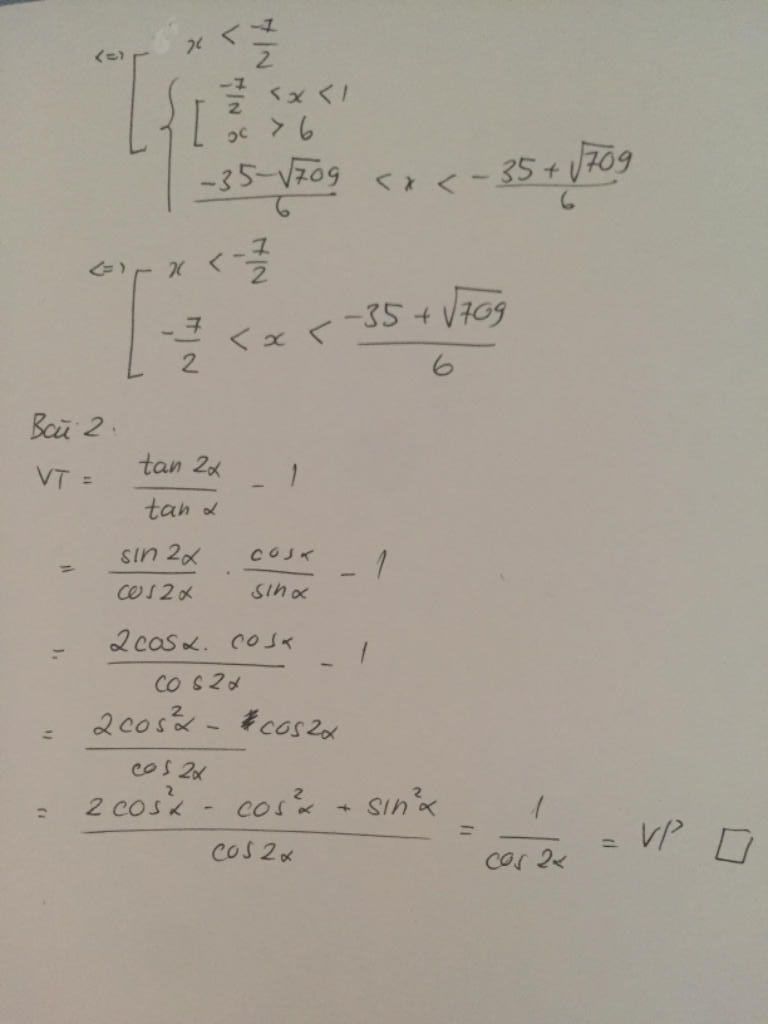 <=> [ x < -7/2
{ [ -7/2 < x < 1
x > 6
(-35-√709)/6 < x < -(35+√709)/6
<=> [ x < -7/2
-7/2 < x < (-35+√709)/6
Bài 2.
VT = tan 2α / tan α - 1
= sin 2α / cos2α . cosα / sinα - 1
= 2cosα. cosα / cos2α - 1
= (2cos²α - cos2α) / cos2α
= (2cos²α - cos²α + sin²α) / cos2α = 1 / cos2α = VP □